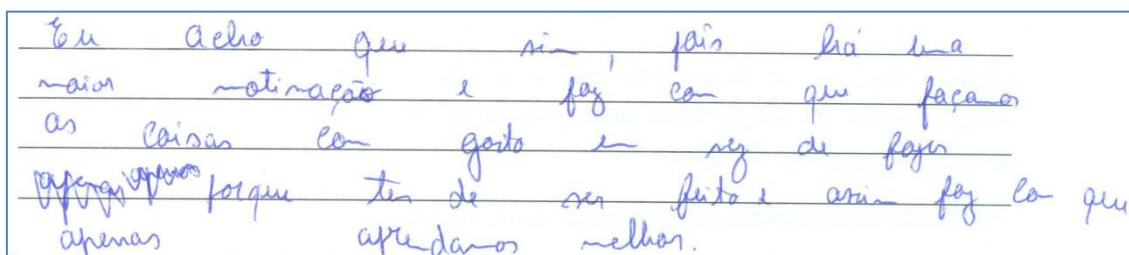 Eu acho que sim, pois há uma
maior motivação e faz com que façamos
as coisas com gosto em vez de fazer
apenas porque tem de ser feito e assim faz com que
apenas aprendamos melhor.